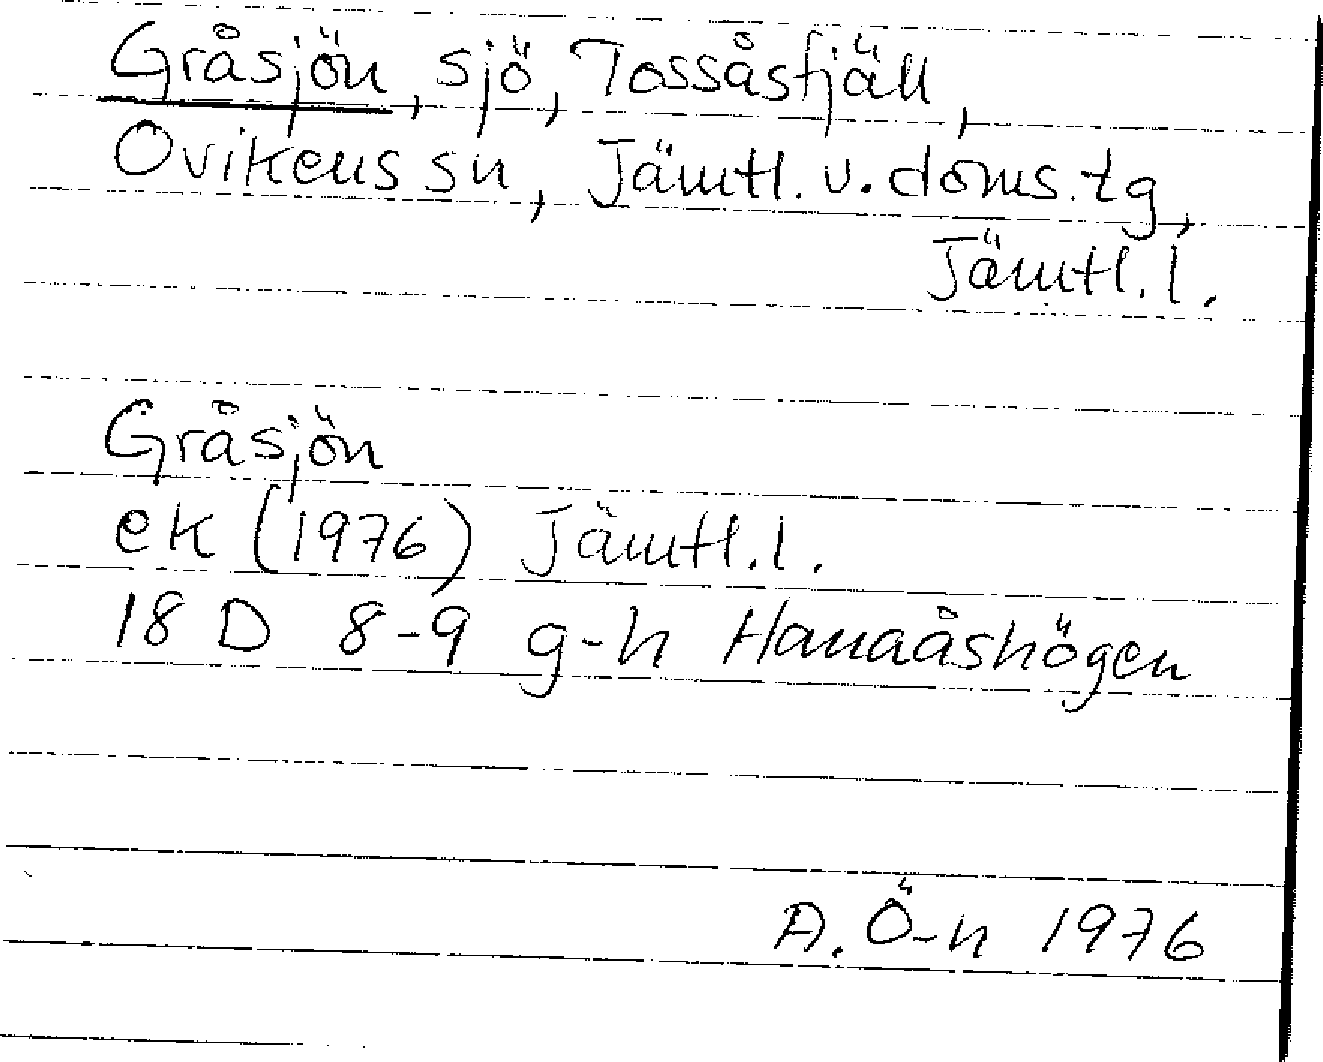 Gråsjön, sjö, Tossåsfjäll,
Ovikens sn, Jämtl. v. doms. tg,
Jämtl. l.
Gråsjön
ek (1976) Jämtl. l.
18 D 8-9 g-h Hanaåshögen
A. Ö-n 1976